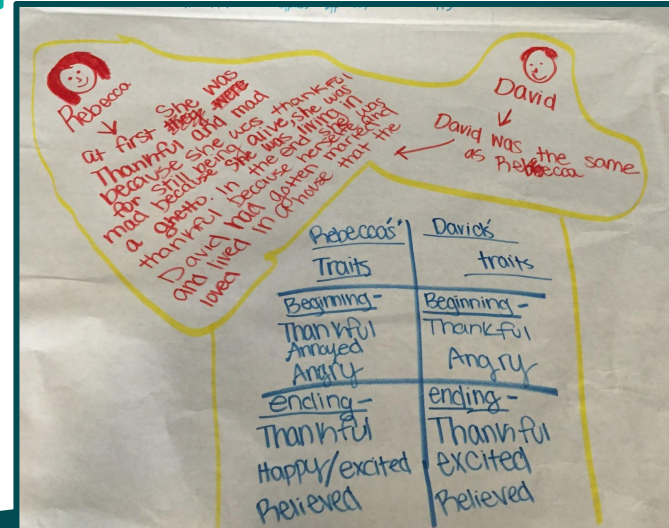 Rebecca
at first she was
Thankful and mad
because she was thankful
for still being alive, she was
mad because she was living in
a ghetto. In the end she was
thankful because herself and
David had gotten
and lived in a house that the
loved
David
David was the same
as Rebecca
Rebecca's' Traits
Beginning-
Thankful
Annoyed
Angry
ending-
Thankful
Happy/excited
Relieved
David's traits
Beginning-
Thankful
Angry
ending-
Thankful
excited
Relieved